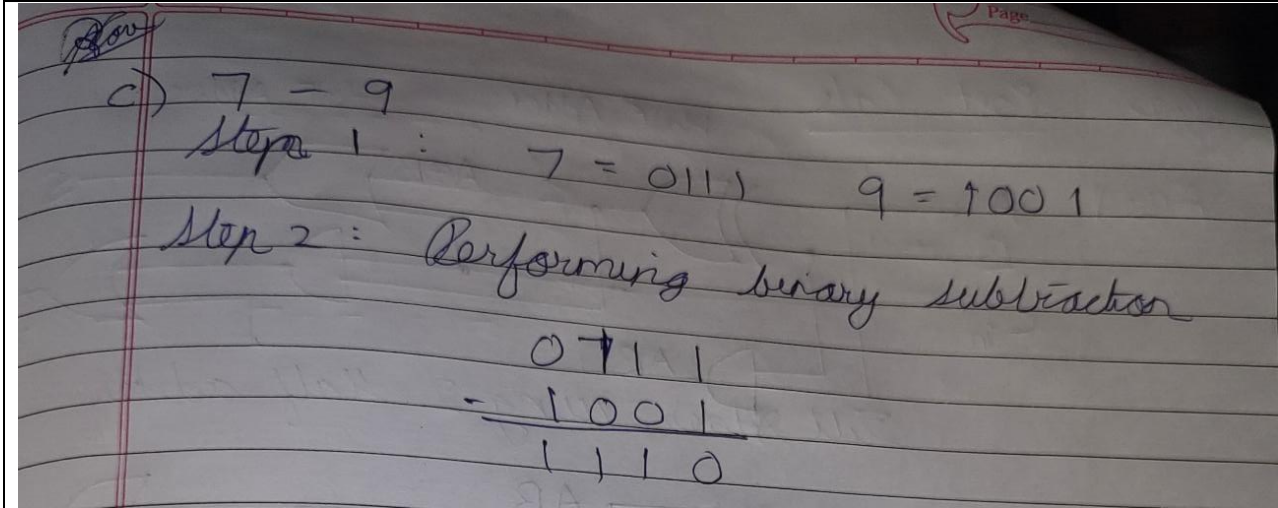 Page
c) 7 - 9
Step 1 : 7 = 0111 9 = 1001
Step 2 : Performing binary subtraction
0111
- 1001
1110